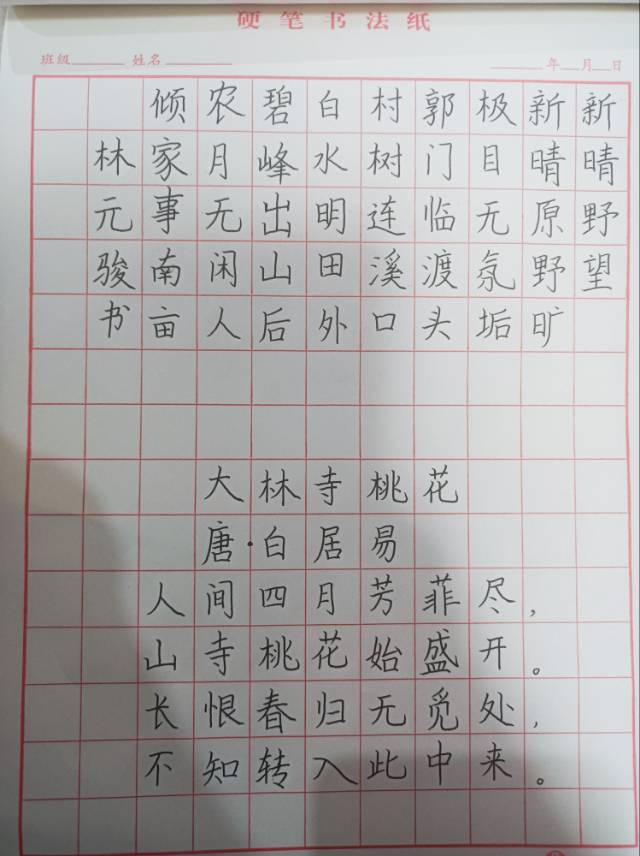 硬笔书法纸
班级 姓名 年 月 日
新晴野望
新晴原野旷
极目无氛垢
郭门临渡头
村树连溪口
白水明田外
碧峰出山后
农月无闲人
倾家事南亩
林元骏书
大林寺桃花
唐·白居易
人间四月芳菲尽，
山寺桃花始盛开。
长恨春归无觅处，
不知转入此中来。